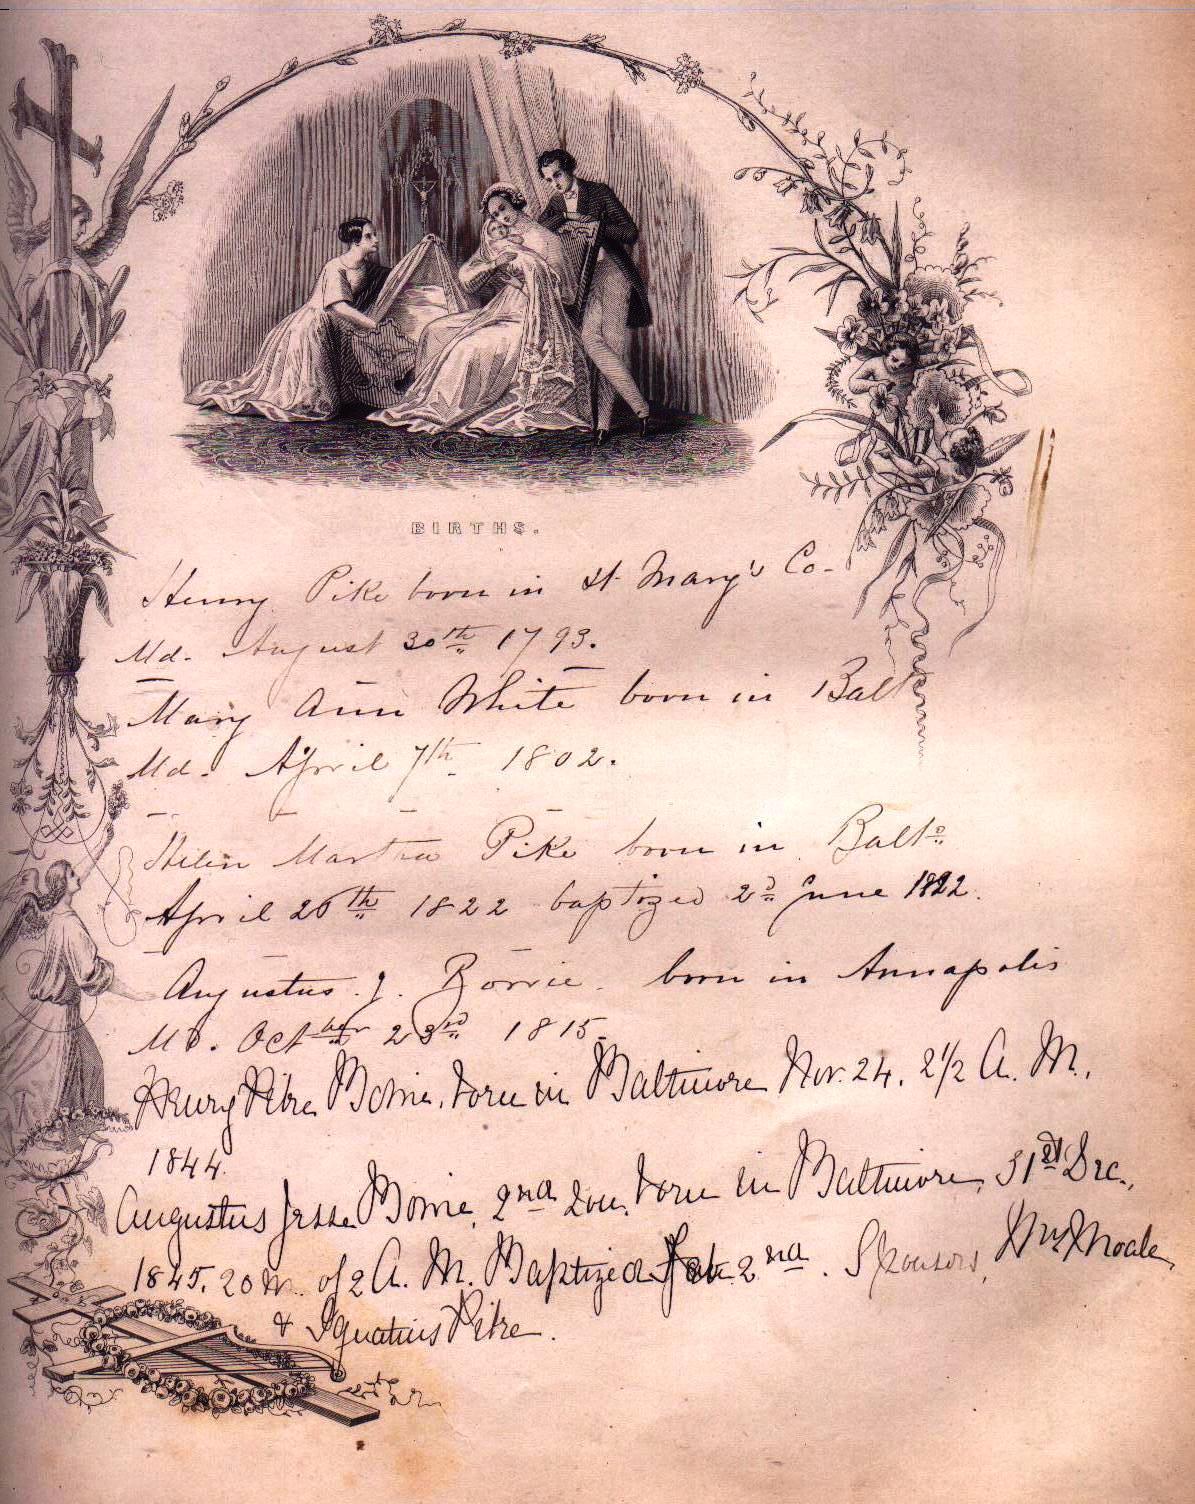 BIRTHS.
Henry Pike born in St Mary's Co.
Md. August 30th 1793.
Mary Ann White born in Balt
Md. April 7th 1802.
Helen Martha Pike born in Balto
April 26th 1822 baptized 2d June 1822.
Augustus J. Bowie born in Annapolis
Md. Octber 23rd 1815.
Henry Pike Bowie, born in Baltimore Nov. 24, 2 1/2 A. M.,
1844.
Augustus Jesse Bowie, 2nd son, born in Baltimore, 31st Dec.,
1845, 20 m. of 2 A. M. Baptized Feb 2nd. Sponsors, Mrs Moale,
& Ignatius Pike.